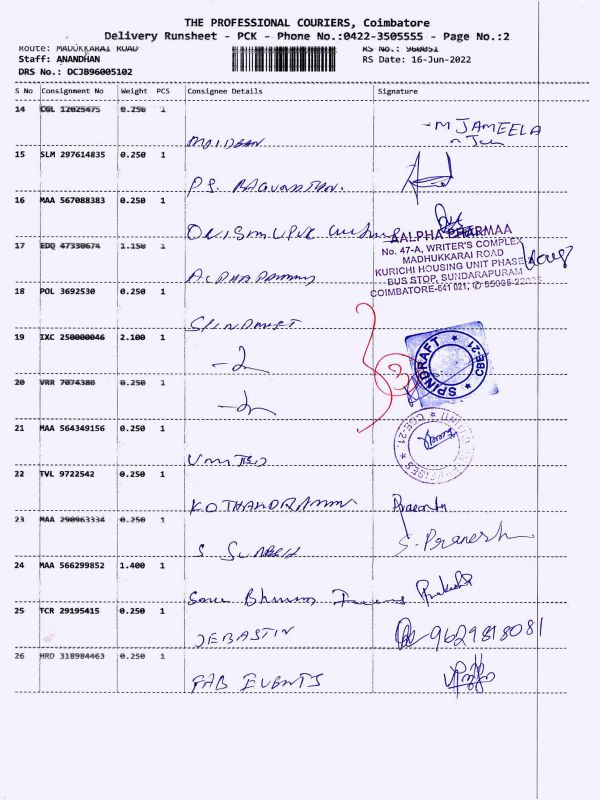 THE PROFESSIONAL COURIERS, Coimbatore
Delivery Runsheet - PCK - Phone No.:0422-3505555 - Page No.:2
Route: MADUKKARAI ROAD RS No.: 960051
Staff: ANANDHAN RS Date: 16-Jun-2022
DRS No.: DCJB96005102
S No Consignment No Weight PCS Consignee Details Signature
14 CGL 12025675 0.250 1
MOIDEEN - M JAMEELA
15 SLM 297614835 0.250 1
PS. RAGUNATHAN.
16 MAA 567088383 0.250 1
AALPHA PHARMAA
No. 47-A, WRITER'S COMPLEX
17 EDQ 47330674 1.150 1
MADHUKKARAI ROAD
KURICHI HOUSING UNIT PHASE
ALPHA PHARMA BUS STOP, SUNDARAPURAM
18 POL 3692530 0.250 1 COIMBATORE-641 021,
SPINDRAFT
19 IXC 250000046 2.100 1
SPINDRAFT CBE-21
20 VRR 7074380 0.250 1
21 MAA 564349156 0.250 1
CBE-21
UNITED
22 TVL 9722542 0.250 1
KOTHANDRAMAN
23 MAA 290963334 0.250 1
S SURESH S. Pranesh
24 MAA 566299852 1.400 1
25 TCR 29195415 0.250 1
JEBASTIN 9629818081
26 HRD 318984463 0.250 1
FAB EVENTS